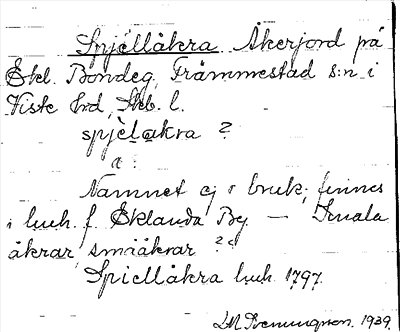 Spjellåkra Åkerjord på
Ekl. Bondeg. Främmestad s:n i
Viste hrd, Skb. l.
spjèl̥a̱kra ?
a :
Namnet ej i bruk; finnes
i luch. f. Eklanda By — Smala
åkrar, småäkrar ?
Spiellåkra luch. 1797.
1939.